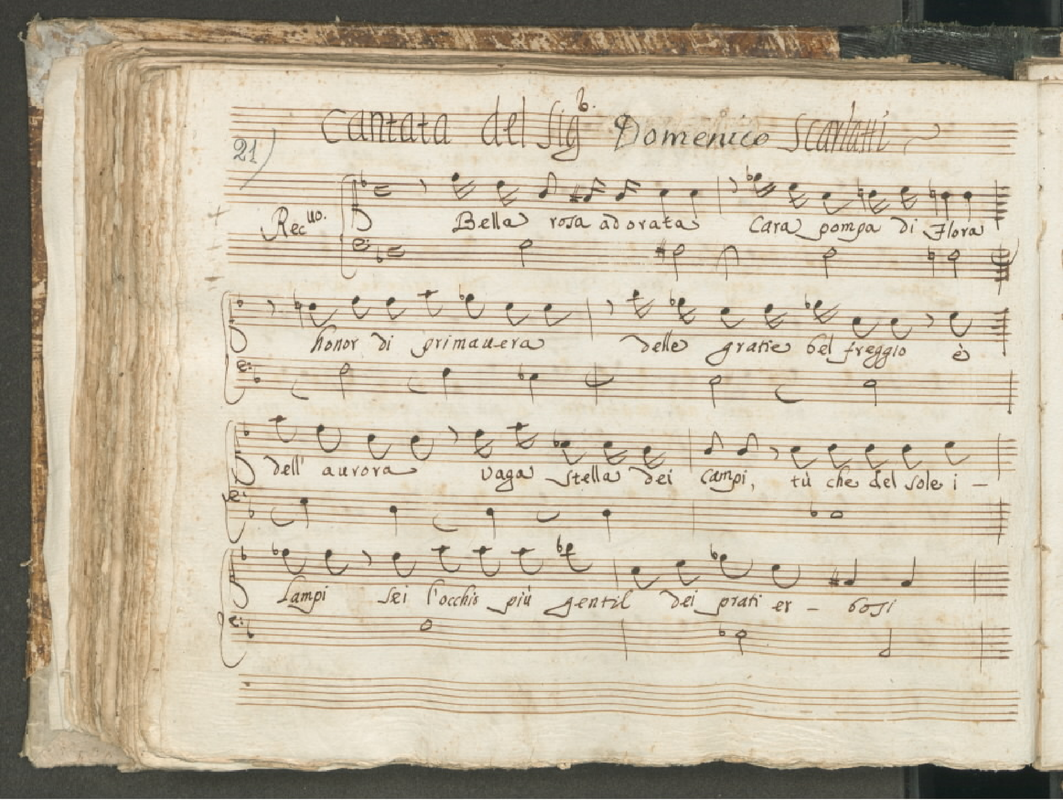 Cantata del Sig.r Domenico Scarlatti
21)
Rec.uo
Bella rosa adorata Cara pompa di Flora
honor di primauera delle gratie bel freggio è
dell' aurora vaga stella dei campi, tù che del sole i-
Lampi sei l'occhio più gentil dei prati er-bosi